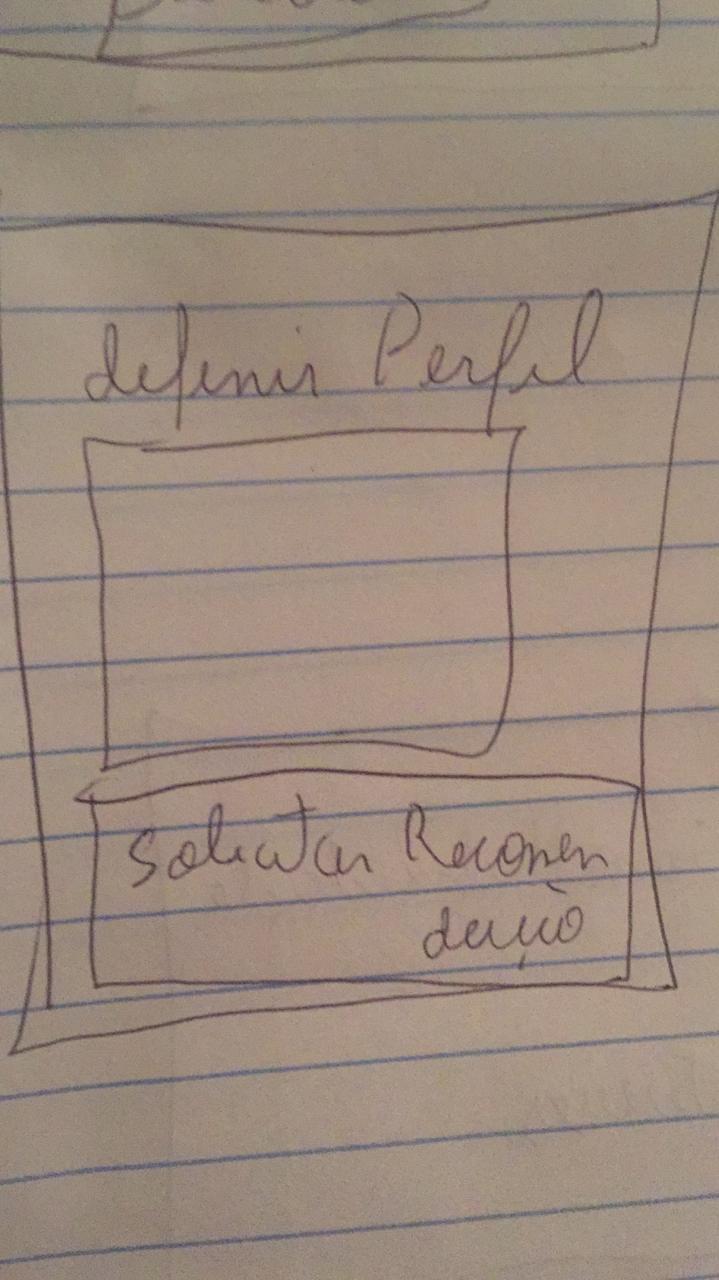 definir Perfil
Solicitar Recomen
dação